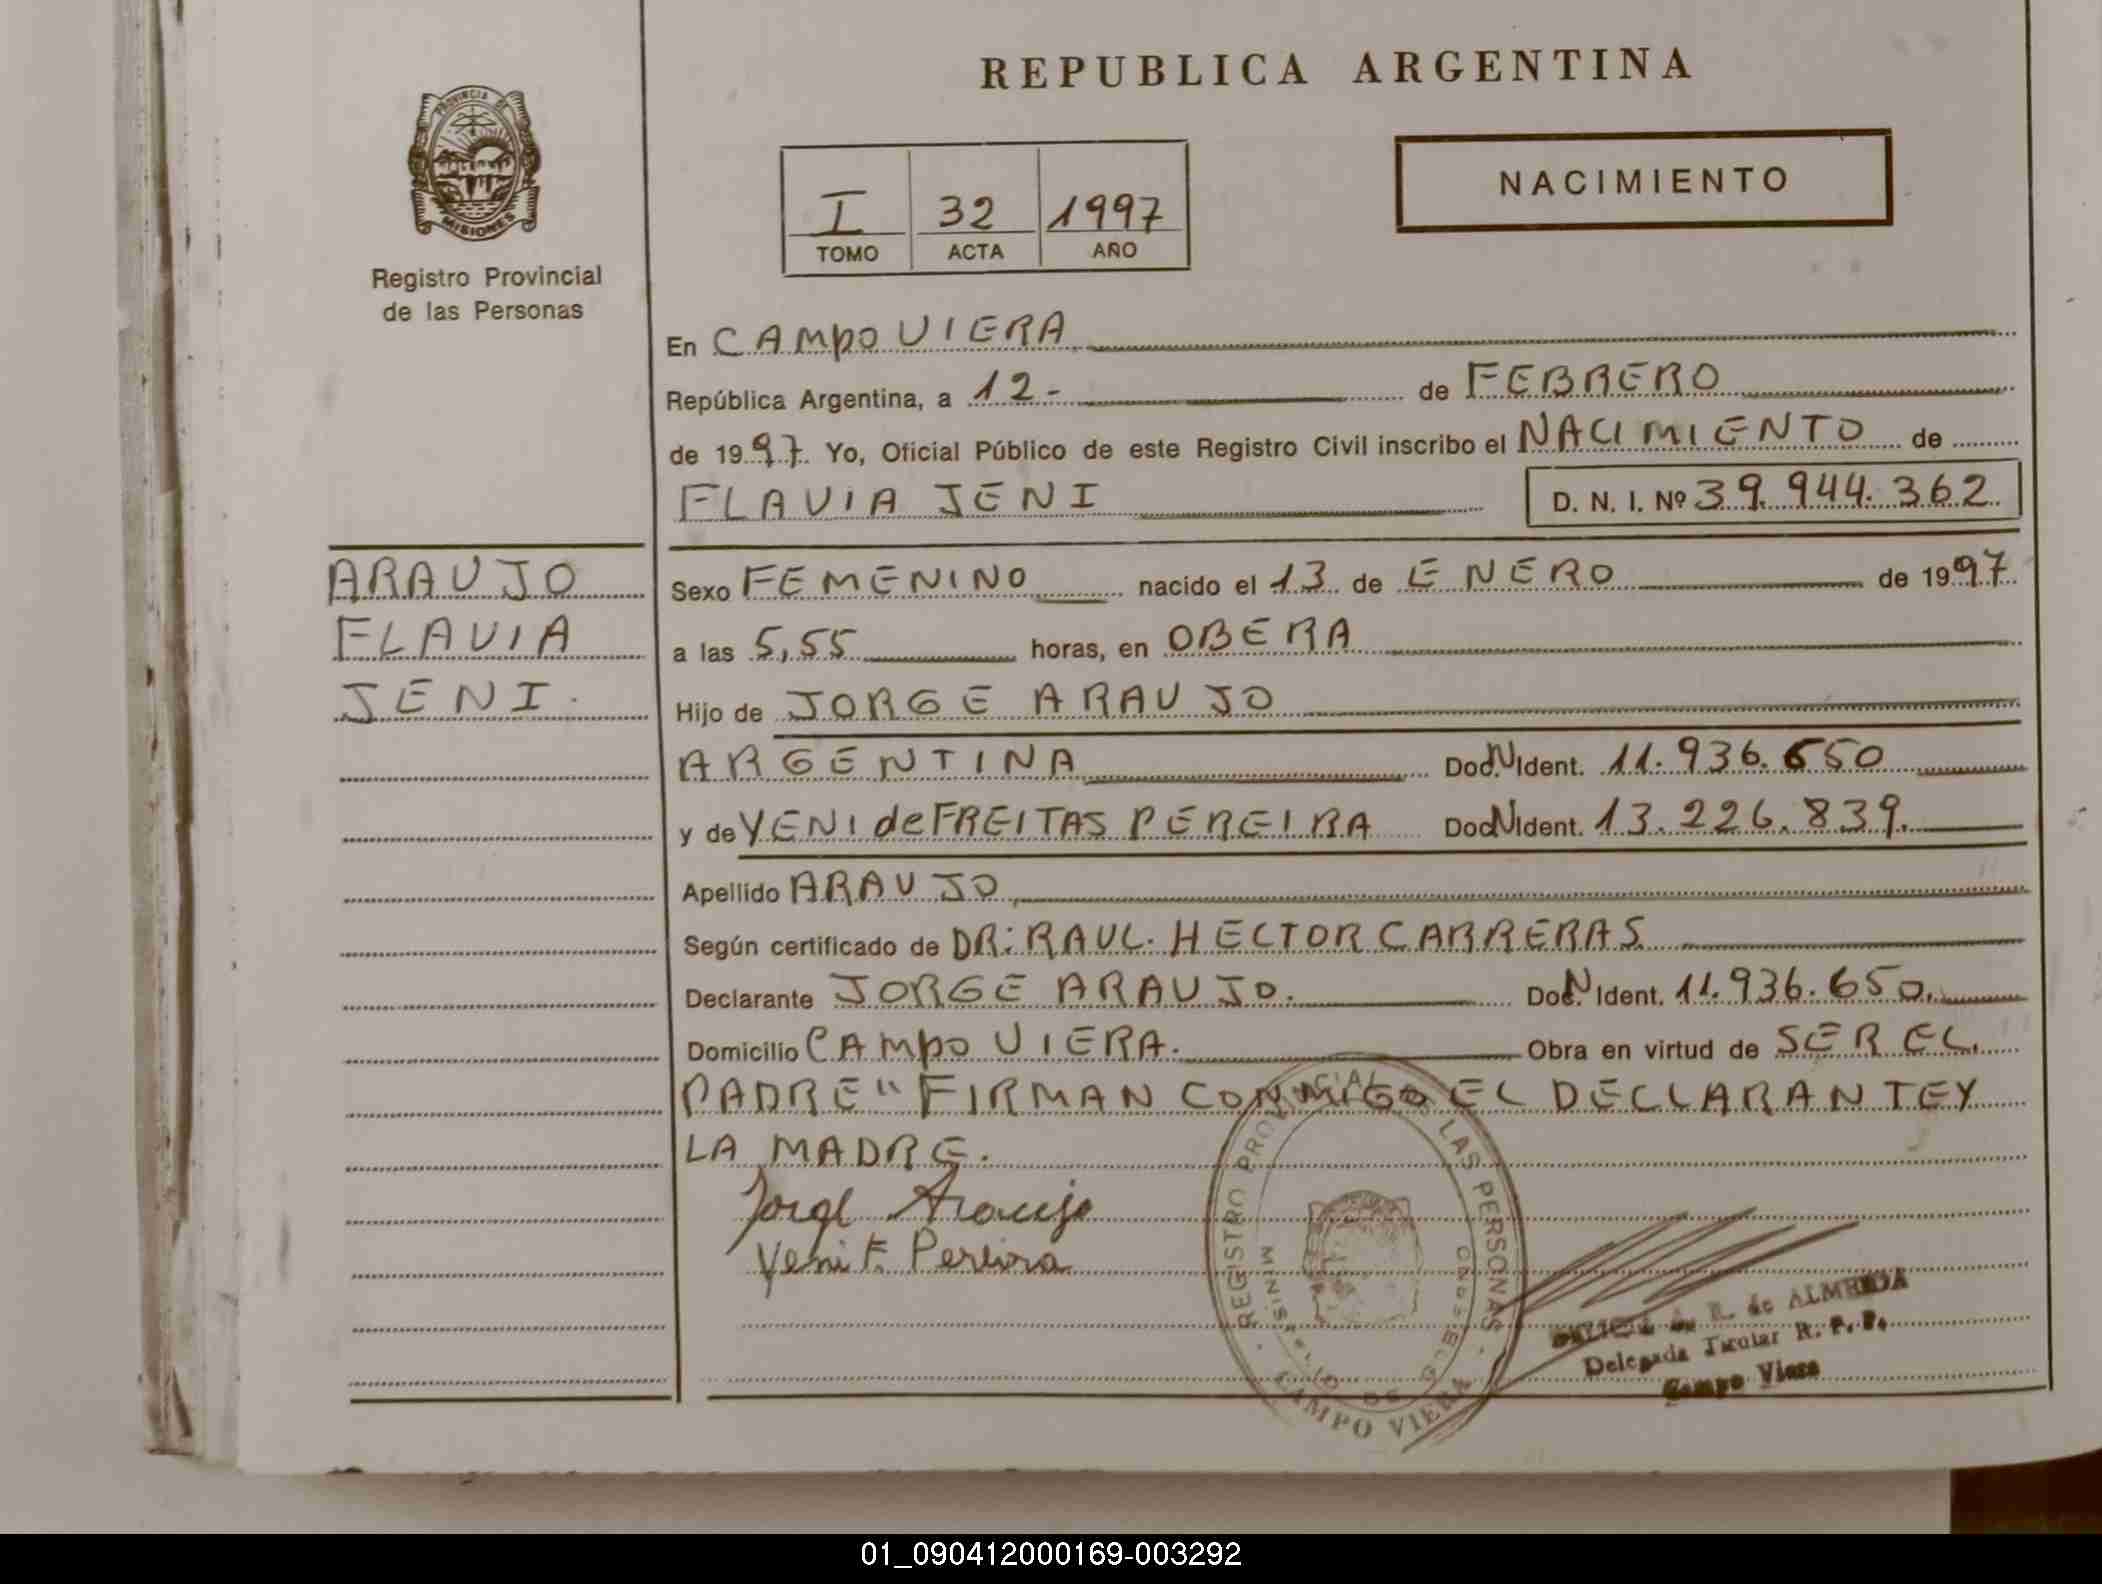 REPUBLICA ARGENTINA
PROVINCIA DE
MISIONES
Registro Provincial
de las Personas
I 32 1997
TOMO ACTA AÑO
NACIMIENTO
En CAMPO VIERA
República Argentina, a 12- de FEBRERO
de 1997. Yo, Oficial Público de este Registro Civil inscribo el NACIMIENTO de
FLAVIA JENI D. N. I. Nº 39.944.362.
ARAUJO
FLAVIA
JENI.
Sexo FEMENINO nacido el 13 de ENERO de 1997
a las 5,55 horas, en OBERA
Hijo de JORGE ARAUJO
ARGENTINA Doc.N Ident. 11.936.650
y de YENI de FREITAS PEREIRA Doc.N Ident. 13.226.839.
Apellido ARAUJO
Según certificado de DR: RAUL. HECTOR CARRERAS
Declarante JORGE ARAUJO. Doc.N Ident. 11.936.650.
Domicilio CAMPO VIERA. Obra en virtud de SER EL
PADRE" FIRMAN CONMIGO EL DECLARANTE Y
LA MADRE.
Jorge Araujo
Yeni F. Pereira
REGISTRO PROVINCIAL LAS PERSONAS
MINISTERIO DE GOBIERNO
CAMPO VIERA
R. de ALMEIDA
Delegada Titular R. P. P.
Campo Viera
01_090412000169-003292